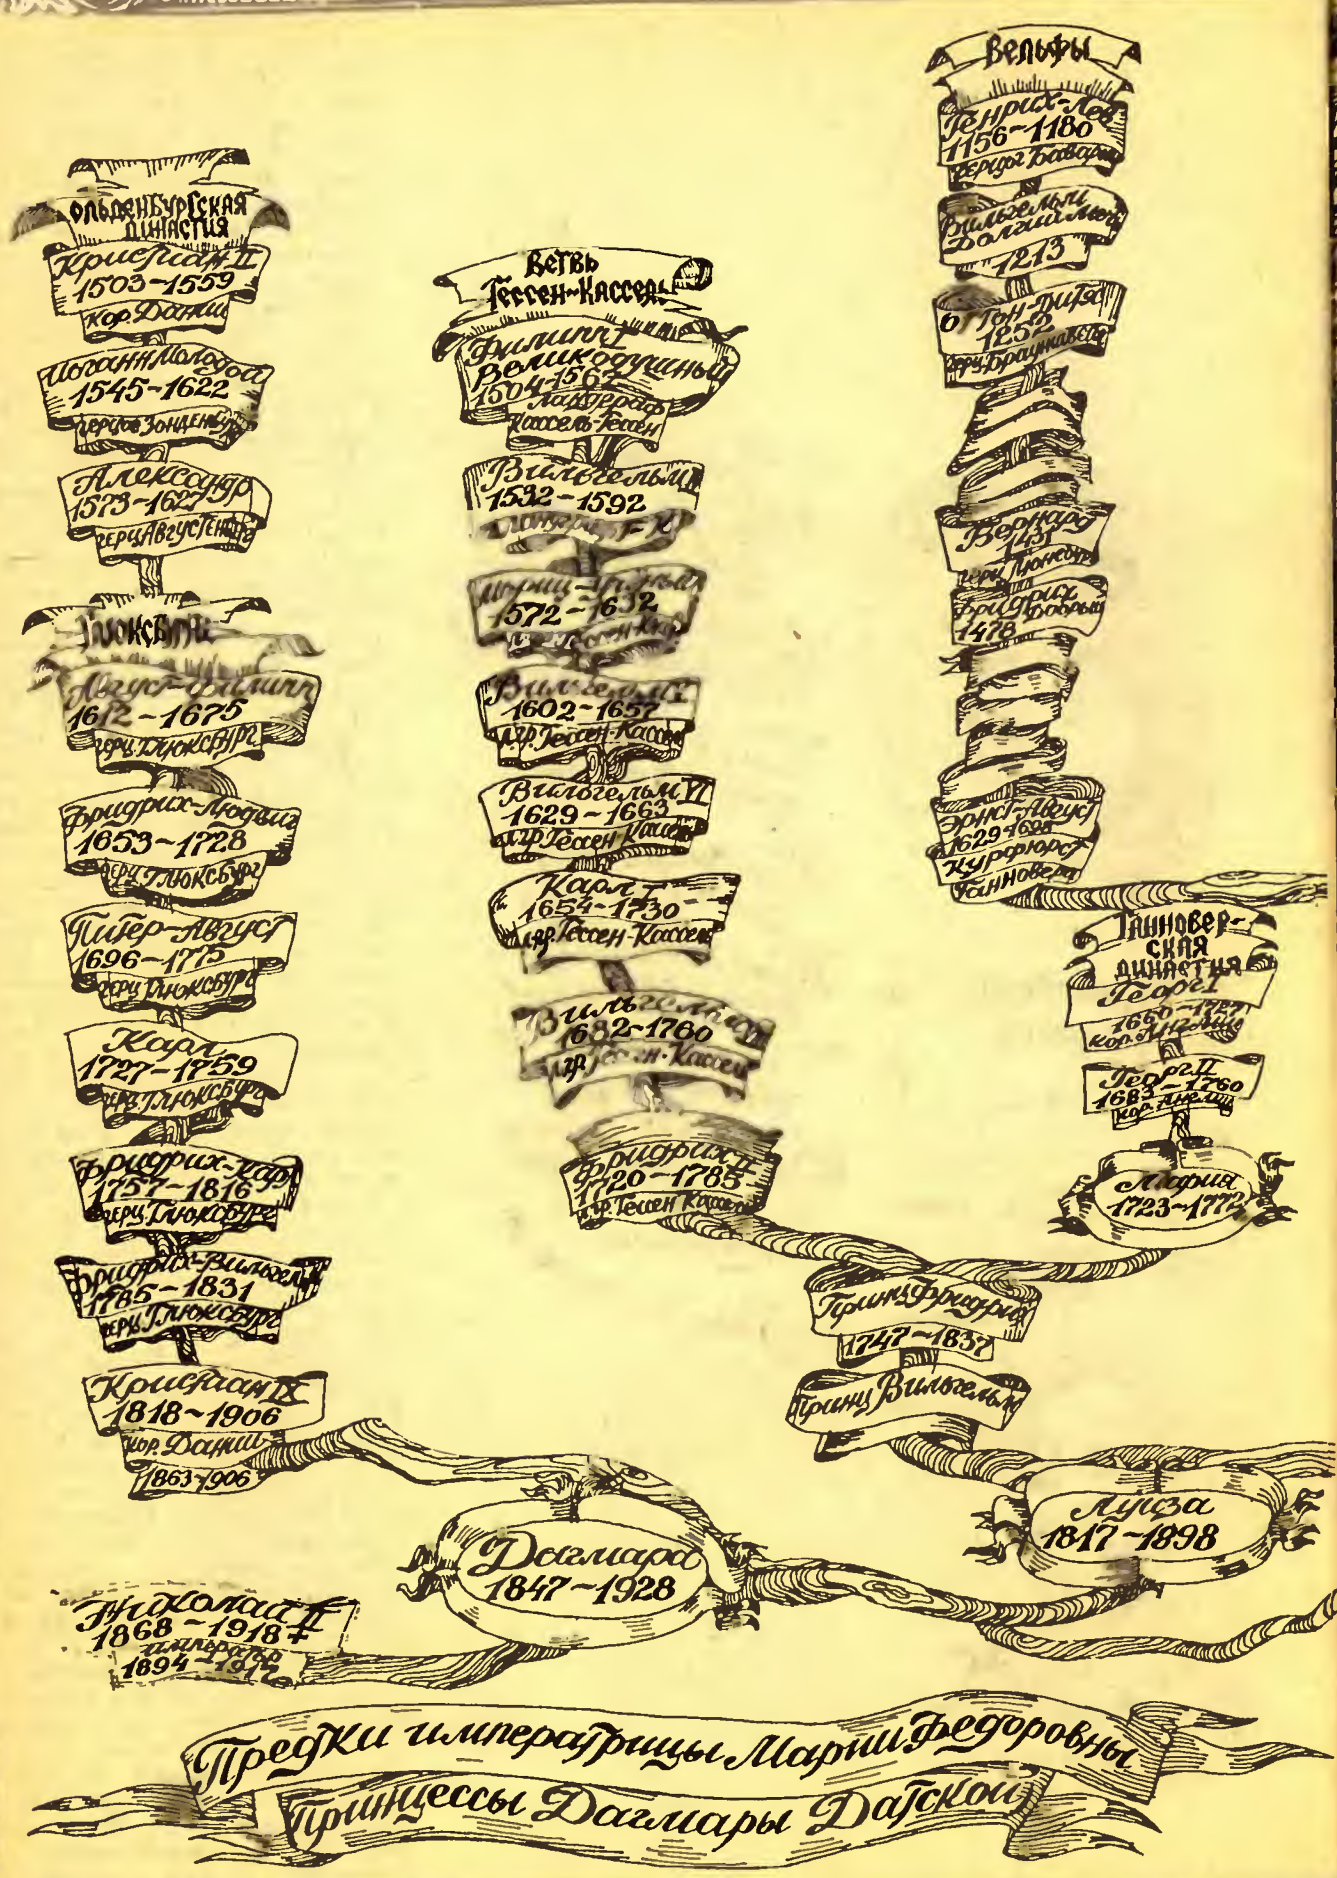 ОЛЬДЕНБУРГСКАЯ
ДИНАСТИЯ
Кристиан II
1503~1559
кор. Дании
Иоганн Молодой
1545~1622
Александр
1573~1627
Глюксбурги
Август-Филипп
1612~1675
герц. Глюксбург
Фридрих-Людвиг
1653~1728
герц. Глюксбург
Питер-Август
1696~1775
герц. Глюксбург
Карл
1727~1759
герц. Глюксбург
Фридрих-Карл
1757~1816
герц. Глюксбург
Фридрих-Вильгельм
1785~1831
герц. Глюксбург
Кристиан IX
1818~1906
кор. Дании
1863-1906
Ветвь
Гессен~Кассель
Филипп I
Великодушный
1504-1567
Ландграф
Кассель-Гессен
Вильгельм
1532~1592
Мориц-Ученый
1572~1632
Вильгельм V
1602~1657
л.гр. Гессен-Кассель
Вильгельм VI
1629~1663
л.гр. Гессен-Кассель
Карл I
1654~1730
л.гр. Гессен-Кассель
Вильгельм VII
1682~1760
л.гр. Гессен-Кассель
Фридрих II
1720~1785
л.гр. Гессен Кассель
Вельфы
Генрих-Лев
1156~1180
герцог Баварии
Вильгельм
Долгий меч
1213
Оттон-дитя
1252
Бернард
1431
герц. Люнебург
Фридрих
Добрый
1478
Эрнст-Август
1629-1698
Курфюрст
Ганновера
Ганновер-
ская
династия
Георг I
1660~1727
кор. Англии
Георг II
1683~1760
кор. Англии
Мария
1723~1772
Принц Фридрих
1747~1837
Принц Вильгельм
Луиза
1817~1898
Дагмара
1847~1928
Николай II
1868~1918 +
император
1894~1917
Предки императрицы Марии Федоровны
Принцессы Дагмары Датской